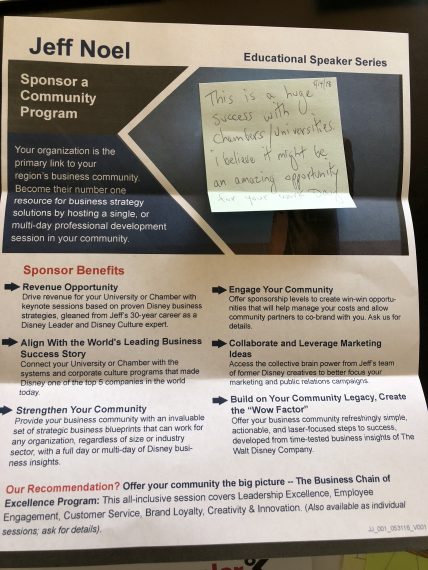 Jeff Noel
Educational Speaker Series
Sponsor a
Community
Program
Your organization is the
primary link to your
region's business community.
Become their number one
resource for business strategy
solutions by hosting a single, or
multi-day professional development
session in your community.
This is a huge
success with
chambers/universities.
I believe it might be
an amazing opportunity
for your
Sponsor Benefits
Revenue Opportunity
Drive revenue for your University or Chamber with
keynote sessions based on proven Disney business
strategies, gleaned from Jeff's 30-year career as a
Disney Leader and Disney Culture expert.
Align With the World's Leading Business
Success Story
Connect your University or Chamber with the
systems and corporate culture programs that made
Disney one of the top 5 companies in the world
today.
Strengthen Your Community
Provide your business community with an invaluable
set of strategic business blueprints that can work for
any organization, regardless of size or industry
sector, with a full day or multi-day of Disney busi-
ness insights.
Engage Your Community
Offer sponsorship levels to create win-win opportu-
nities that will help manage your costs and allow
community partners to co-brand with you. Ask us for
details.
Collaborate and Leverage Marketing
Ideas
Access the collective brain power from Jeff's team
of former Disney creatives to better focus your
marketing and public relations campaigns.
Build on Your Community Legacy, Create
the "Wow Factor"
Offer your business community refreshingly simple,
actionable, and laser-focused steps to success,
developed from time-tested business insights of The
Walt Disney Company.
Our Recommendation? Offer your community the big picture -- The Business Chain of
Excellence Program: This all-inclusive session covers Leadership Excellence, Employee
Engagement, Customer Service, Brand Loyalty, Creativity & Innovation. (Also available as individual
sessions; ask for details).
JJ_001_053118_V001